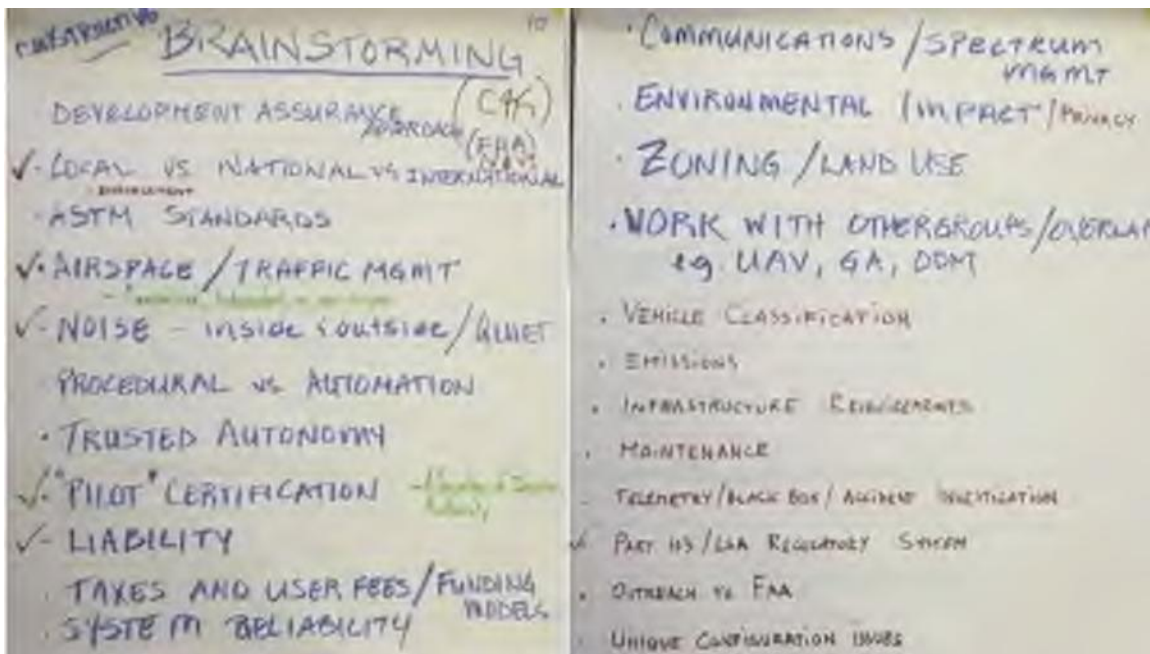 BRAINSTORMING
· DEVELOPMENT ASSURANCE
APPROACH (FAA)
✓· LOCAL VS NATIONAL VS INTERNATIONAL
· ASTM STANDARDS
✓· AIRSPACE / TRAFFIC MGMT
✓- NOISE - inside & outside / QUIET
PROCEDURAL vs AUTOMATION
· TRUSTED AUTONOMY
✓· "PILOT" CERTIFICATION
✓- LIABILITY
· TAXES AND USER FEES / FUNDING
MODELS
· SYSTEM RELIABILITY
· COMMUNICATIONS / SPECTRUM
MGMT
· ENVIRONMENTAL / IMPACT / PRIVACY
· ZONING / LAND USE
· WORK WITH OTHER GROUPS / OVERLAP
eg. UAV, GA, ODM
· VEHICLE CLASSIFICATION
· EMISSIONS
· INFRASTRUCTURE REQUIREMENTS
· MAINTENANCE
· TELEMETRY / BLACK BOX / ACCIDENT INVESTIGATION
✓ PART 103 / LSA REGULATORY SYSTEM
· OUTREACH TO FAA
· UNIQUE CONFIGURATION ISSUES